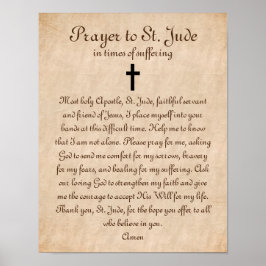 Prayer to St. Jude
in times of suffering
Most holy Apostle, St. Jude, faithful servant
and friend of Jesus, I place myself into your
hands at this difficult time. Help me to know
that I am not alone. Please pray for me, asking
God to send me comfort for my sorrows, bravery
for my fears, and healing for my suffering. Ask
our loving God to strengthen my faith and give
me the courage to accept His Will for my life.
Thank you, St. Jude, for the hope you offer to all
who believe in you.
Amen